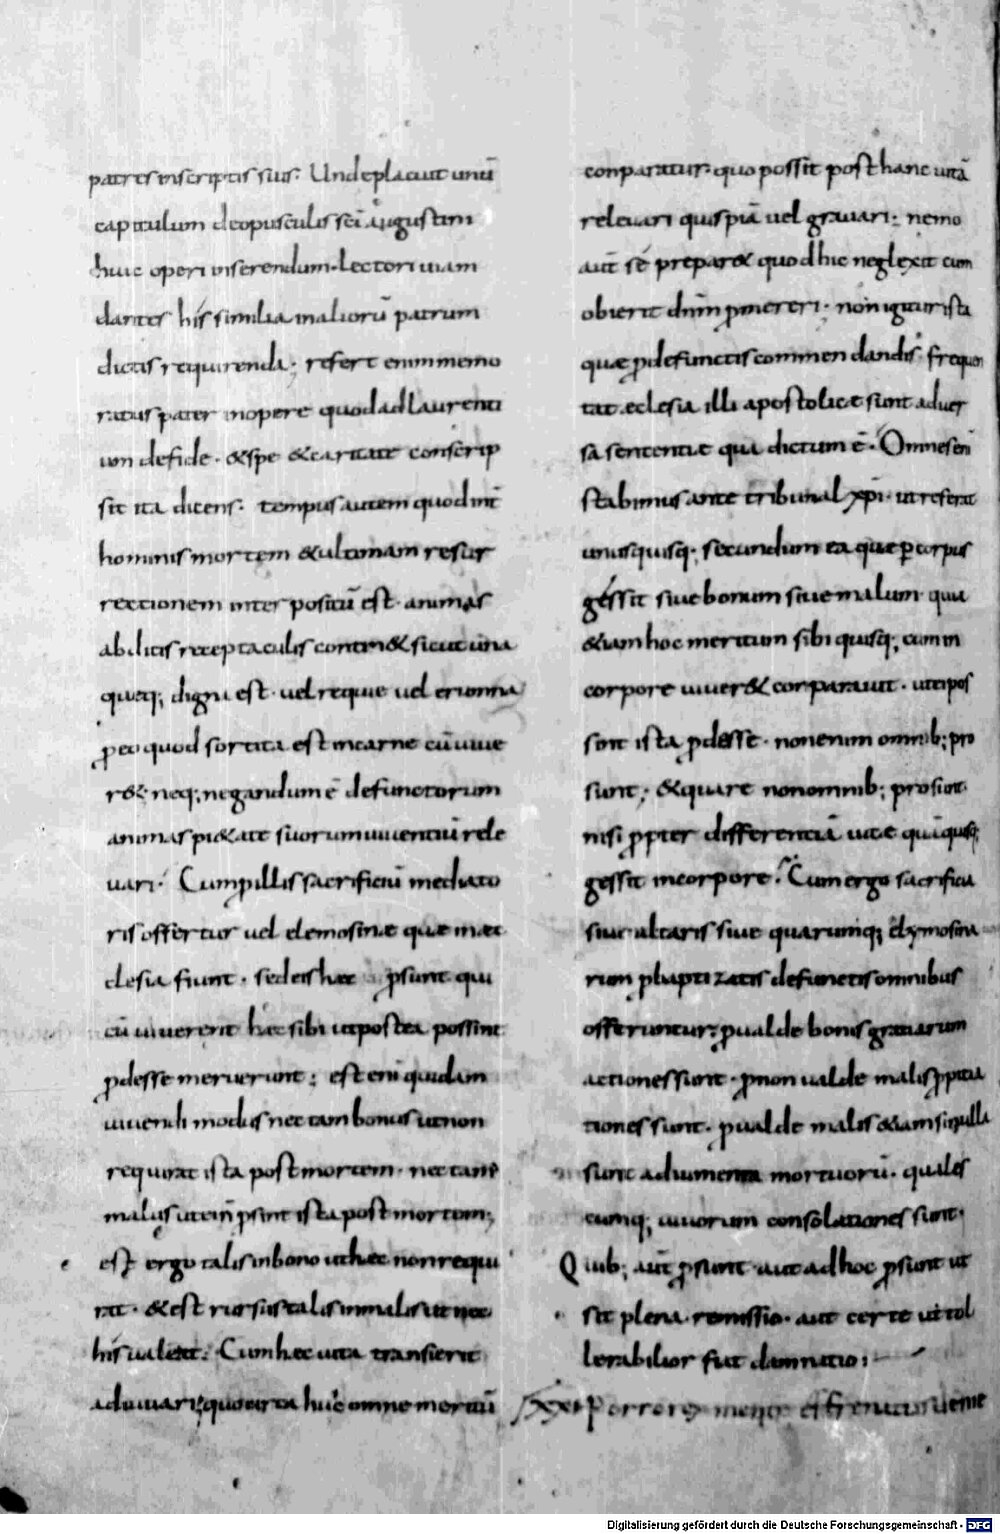 patres inscriptis suis· Unde placuit unū
capitulum deopusculis sc̄i augustini
huic operi inserendum· lectori uiam
dantes his similia inaliorū patrum
dictis requirenda· refert enim memo
ratus pater inopere quod ad laurenti
um defide· &spe &caritate conscrip
sit ita dicens· tempus autem quod int̄
hominis mortem &ultimam resur
rectionem interpositū est· animas
abditis receptaculis contin& sicut una
quęq; digna est· uel requie uel erumna
ꝓ eo quod sortita est incarne cū uiue
r&· neq; negandum ē defunctorum
animas pi&ate suorum uiuentiū rele
uari· Cum ꝓ illis sacrificiū mediato
ris offertur uel elemosinæ quæ in æc
clesia fiunt· sed eis hæc ꝓsunt qui
cū uiuerent hæc sibi ut postea possint
ꝓdesse meruerunt; est eni quidam
uiuendi modus nec tam bonus ut non
requirat ista post mortem· nec tam
malus ut ei n̄ ꝓsint ista post mortem;
est ergo talis inbono ut hæc non requi
rat· &est rursus talis inmalis ut nec
his ualeat· Cum hæc uita transierit
adiuuari; quocirca hic omne meritū
conparatur· quo possit post hanc uitā
releuari quispiā uel grauari· nemo
aut̄ se prepar& quod hic neglexit cum
obierit dn̄m ꝓmereri· non igitur ista
quæ ꝓ defunctis commendandis frequen
tat eclesia illi apostolicæ sunt aduer
sa sententiæ qua dictum ē· Omnes eni
stabimus ante tribunal xp̄i· ut referat
unusquisq; secundum ea que ꝑ corpus
gessit siue bonum siue malum· quia
&iam hoc meritum sibi quisq; cum in
corpore uiuer& conparauit· ut ei pos
sint ista ꝓdesse· non enim omnib; pro
sunt; &quare non omnib; prosunt·
nisi ꝓpter differentiā uitæ quā quisq;
gessit incorpore· Cum ergo sacrificia
siue altaris siue quarumq; elymosina
rum ꝓ baptizatis defunctis omnibus
offeruntur; ꝓ ualde bonis gratiarum
actiones sunt· ꝓ non ualde malis ꝓpitia
tiones sunt· ꝓ ualde malis &iam si nulla
sunt adiumenta mortuorū· quales
cumq; uiuorum consolationes sunt·
Quib; aut̄ ꝓsunt· aut ad hoc ꝓsunt ut
sit plena remissio· aut certe ut tol
lerabilior fiat damnatio;
Digitalisierung gefördert durch die Deutsche Forschungsgemeinschaft - DFG